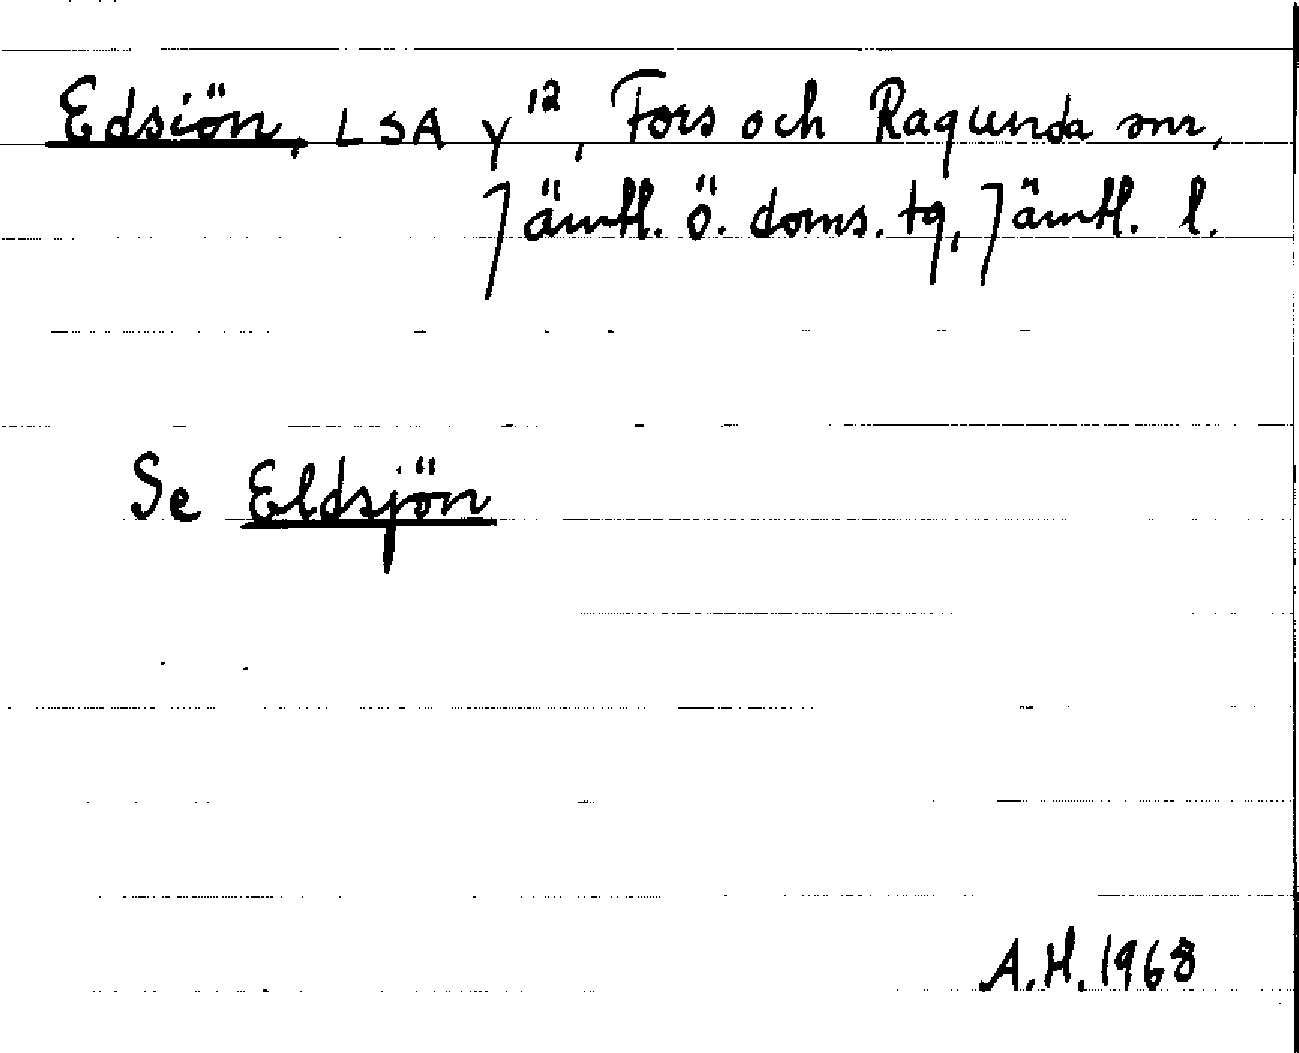 Edsiön, LSA y¹², Fors och Ragunda snr,
Jämtl. ö. doms. tg, Jämtl. l.
Se Eldsjön
A.H. 1968